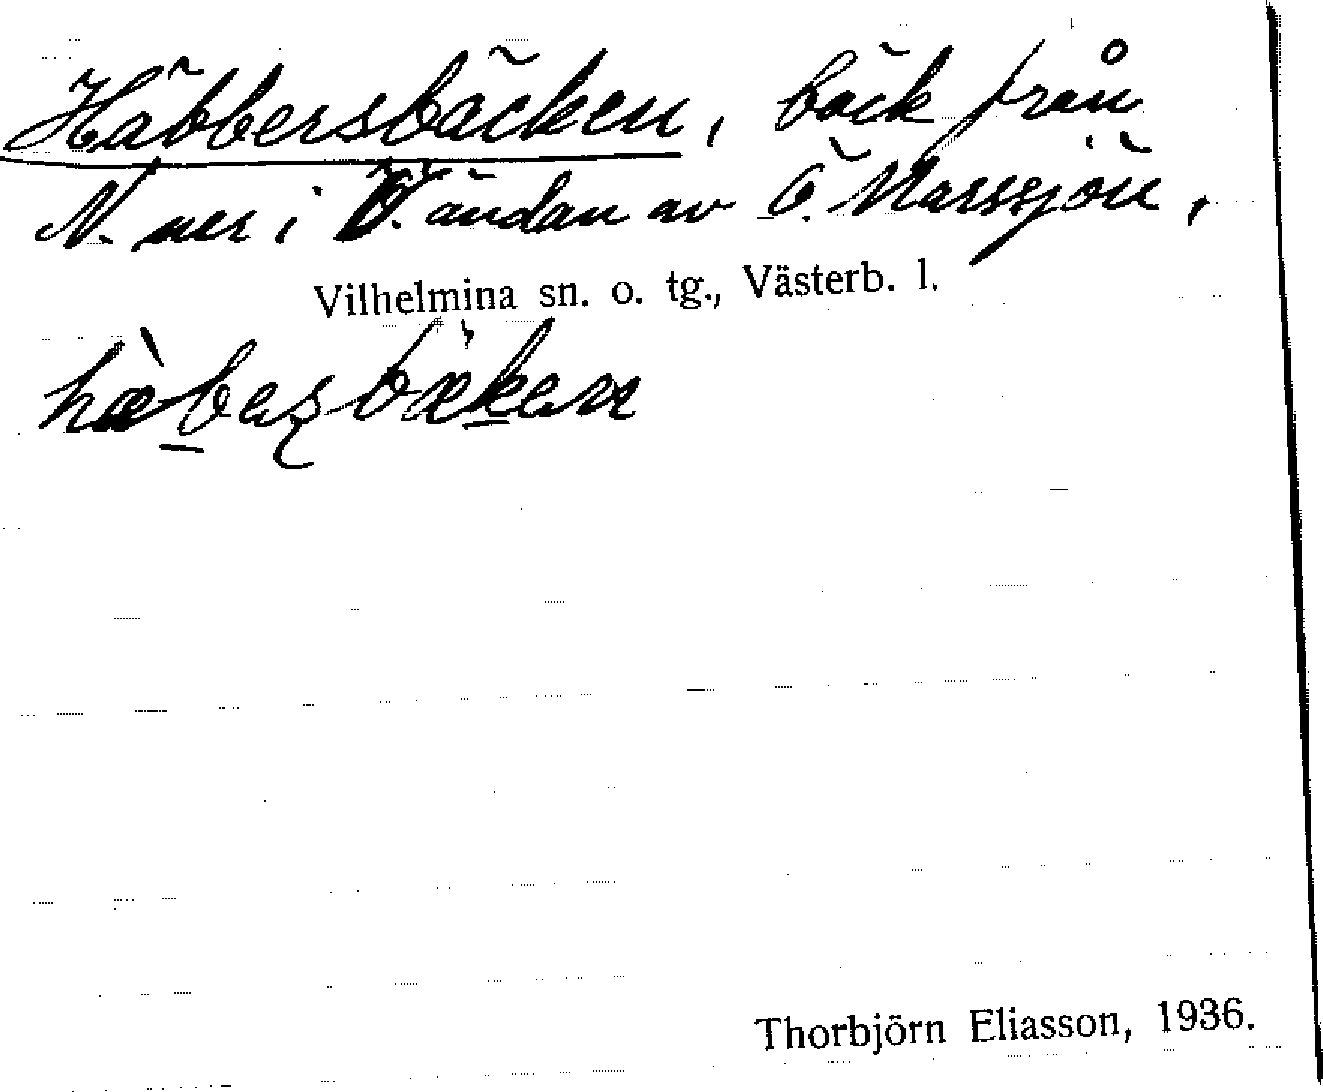 Häbbersbäcken, bäck från
N. ner i Ö. ändan av Ö. Marssjön,
Vilhelmina sn. o. tg., Västerb. l.
hæ̀bеʂbækən
Thorbjörn Eliasson, 1936.